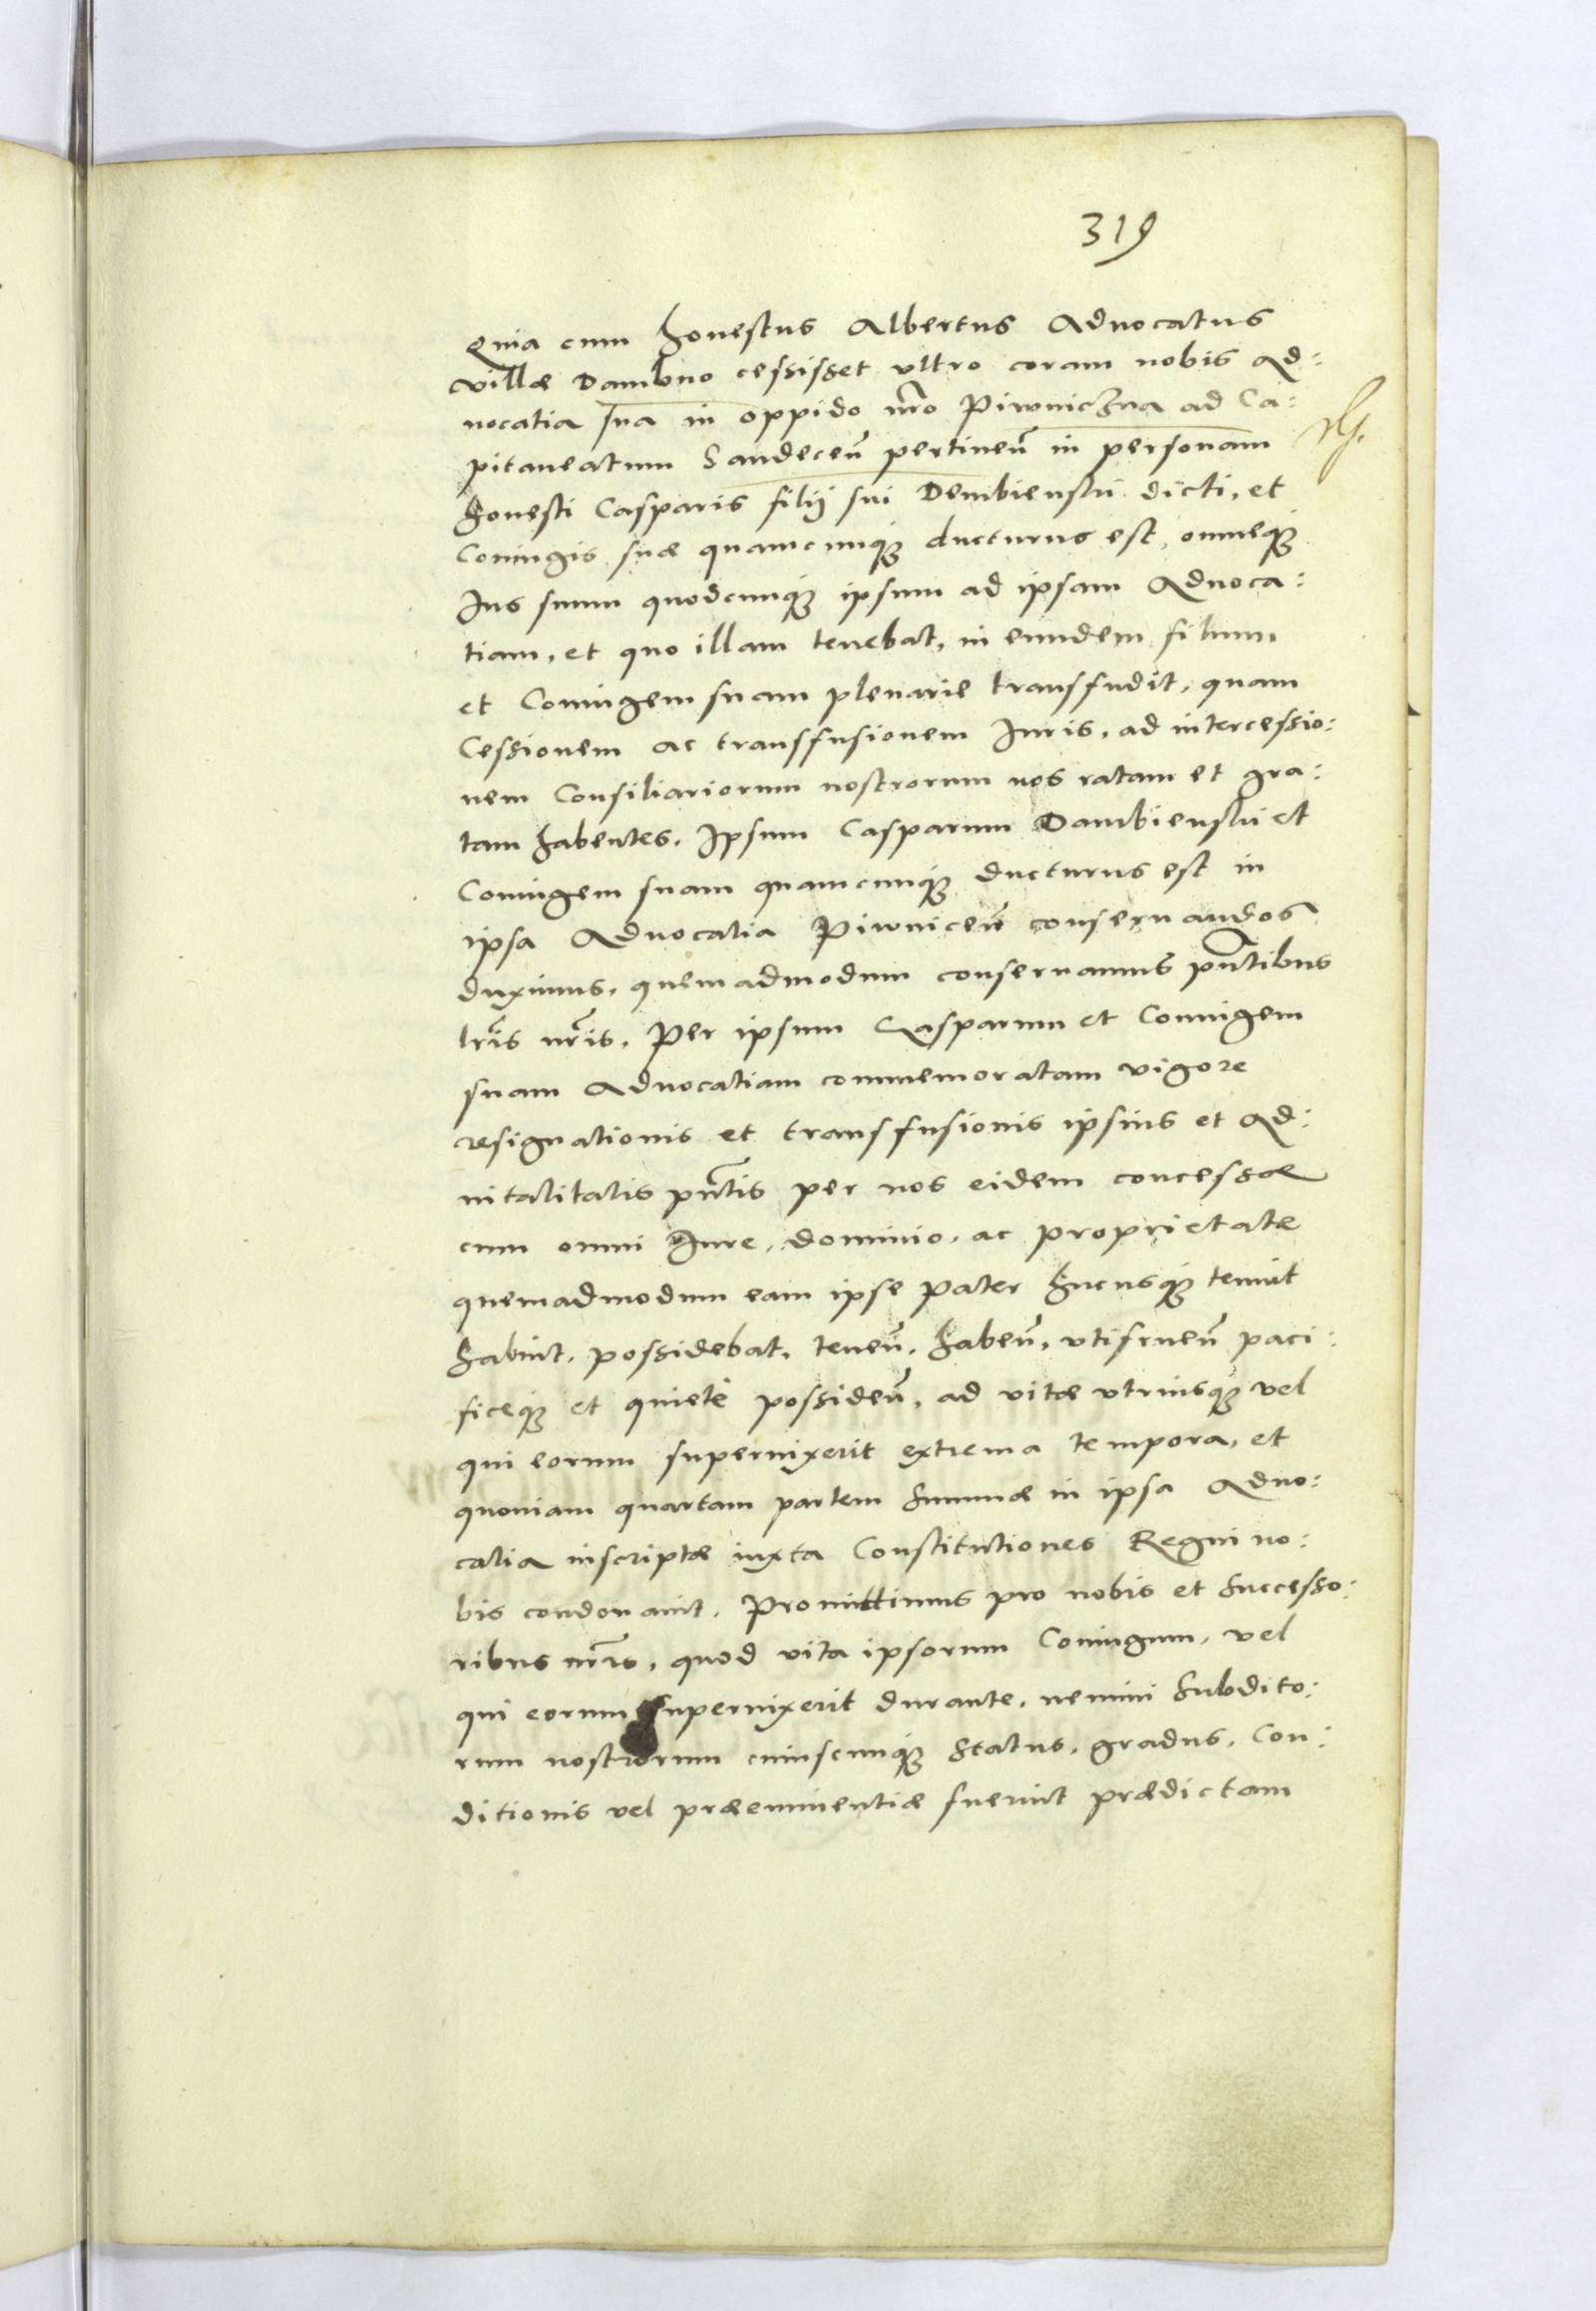 319
Quia cum honestus Albertus Aduocatus
villæ Dambno cessisset vltro coram nobis Ad:
uocatia sua in oppido nr̃o Piwniczna ad Ca:
pitaneatum Sandeceñ pertineñ in personam
honesti Casparis filij sui Dembienski dicti, et
Coniugis suæ quamcunq̃ ducturus est, omneq̃
Ius suum quodcunq̃ ipsum ad ipsam Aduoca:
tiam, et quo illam tenebat, in eundem filium
et Coniugem suam plenarie transfudit, quam
Cessionem ac transfusionem Iuris, ad intercessio:
nem Consiliariorum nostrorum nos ratam et gra:
tam habentes. Ipsum Casparum Dambienski et
Coniugem suam quamcunq̃ ducturus est in
ipsa Aduocatia Piwniceñ conseruandos
duximus, quemadmodum conseruamus pñtibus
lr̃is nr̃is. Per ipsum Casparum et Coniugem
suam Aduocatiam commemoratam vigore
resignationis et transfusionis ipsius et Ad:
uitalitatis pñtis per nos eidem concessæ
cum omni Iure, dominio, ac proprietate
quemadmodum eam ipse Pater hucusq̃ tenuit
habuit, possidebat, teneñ, habeñ, vtifrueñ paci:
ficeq̃ et quiete possideñ, ad vitæ vtriusq̃ vel
qui eorum superuixerit extrema tempora, et
quoniam quartam partem summæ in ipsa Aduo:
catia inscriptæ iuxta Constitutiones Regni no:
bis condonauit. Promittimus pro nobis et Successo:
ribus nr̃is, quod vita ipsorum Coniugum, vel
qui eorum superuixerit durante, nemini Subdito:
rum nostrorum cuiuscunq̃ status, gradus, Con:
ditionis vel præeminentiæ fuerint prædictam